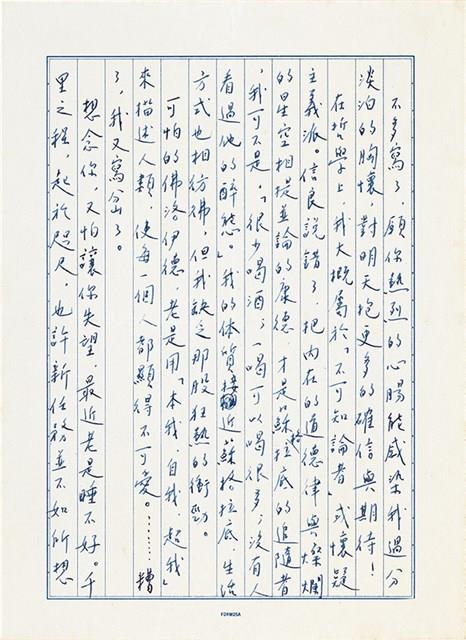 不多寫了，願你熱烈的心腸能感染我過分
淡泊的胸懷，對明天抱更多的確信與期待！
在哲學上，我大概屬於「不可知論者」式懷疑
主義派。信良說錯了，把內在的道德律與燦爛
的星空相提並論的康德，才是蘇格拉底的追隨者
，我可不是。「很少喝酒，一喝可以喝很多，沒有人
看過他的醉態。」我的体質接近蘇格拉底，生活
方式也相彷彿，但我缺乏那股狂熱的衝勁。
可怕的佛洛伊德，老是用「本我，自我，超我」
來描述人類，使每一個人都顯得不可愛。………糟
了，我又寫岔了。
想念你，又怕讓你失望，最近老是睡不好。千
里之程，起於咫尺，也許新任務並不如所想
FORMOSA